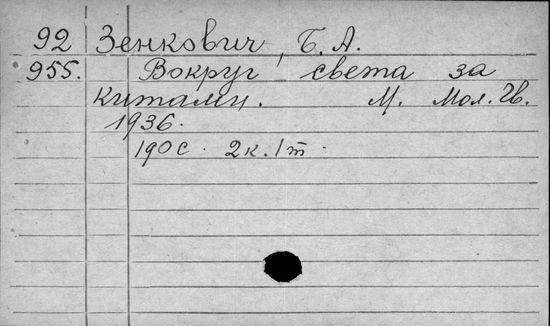 92 Зенкович, Б. А.
955. Вокруг света за
китами. М. Мол. Гв.
1936.
190 с. 2 к. 1 т.